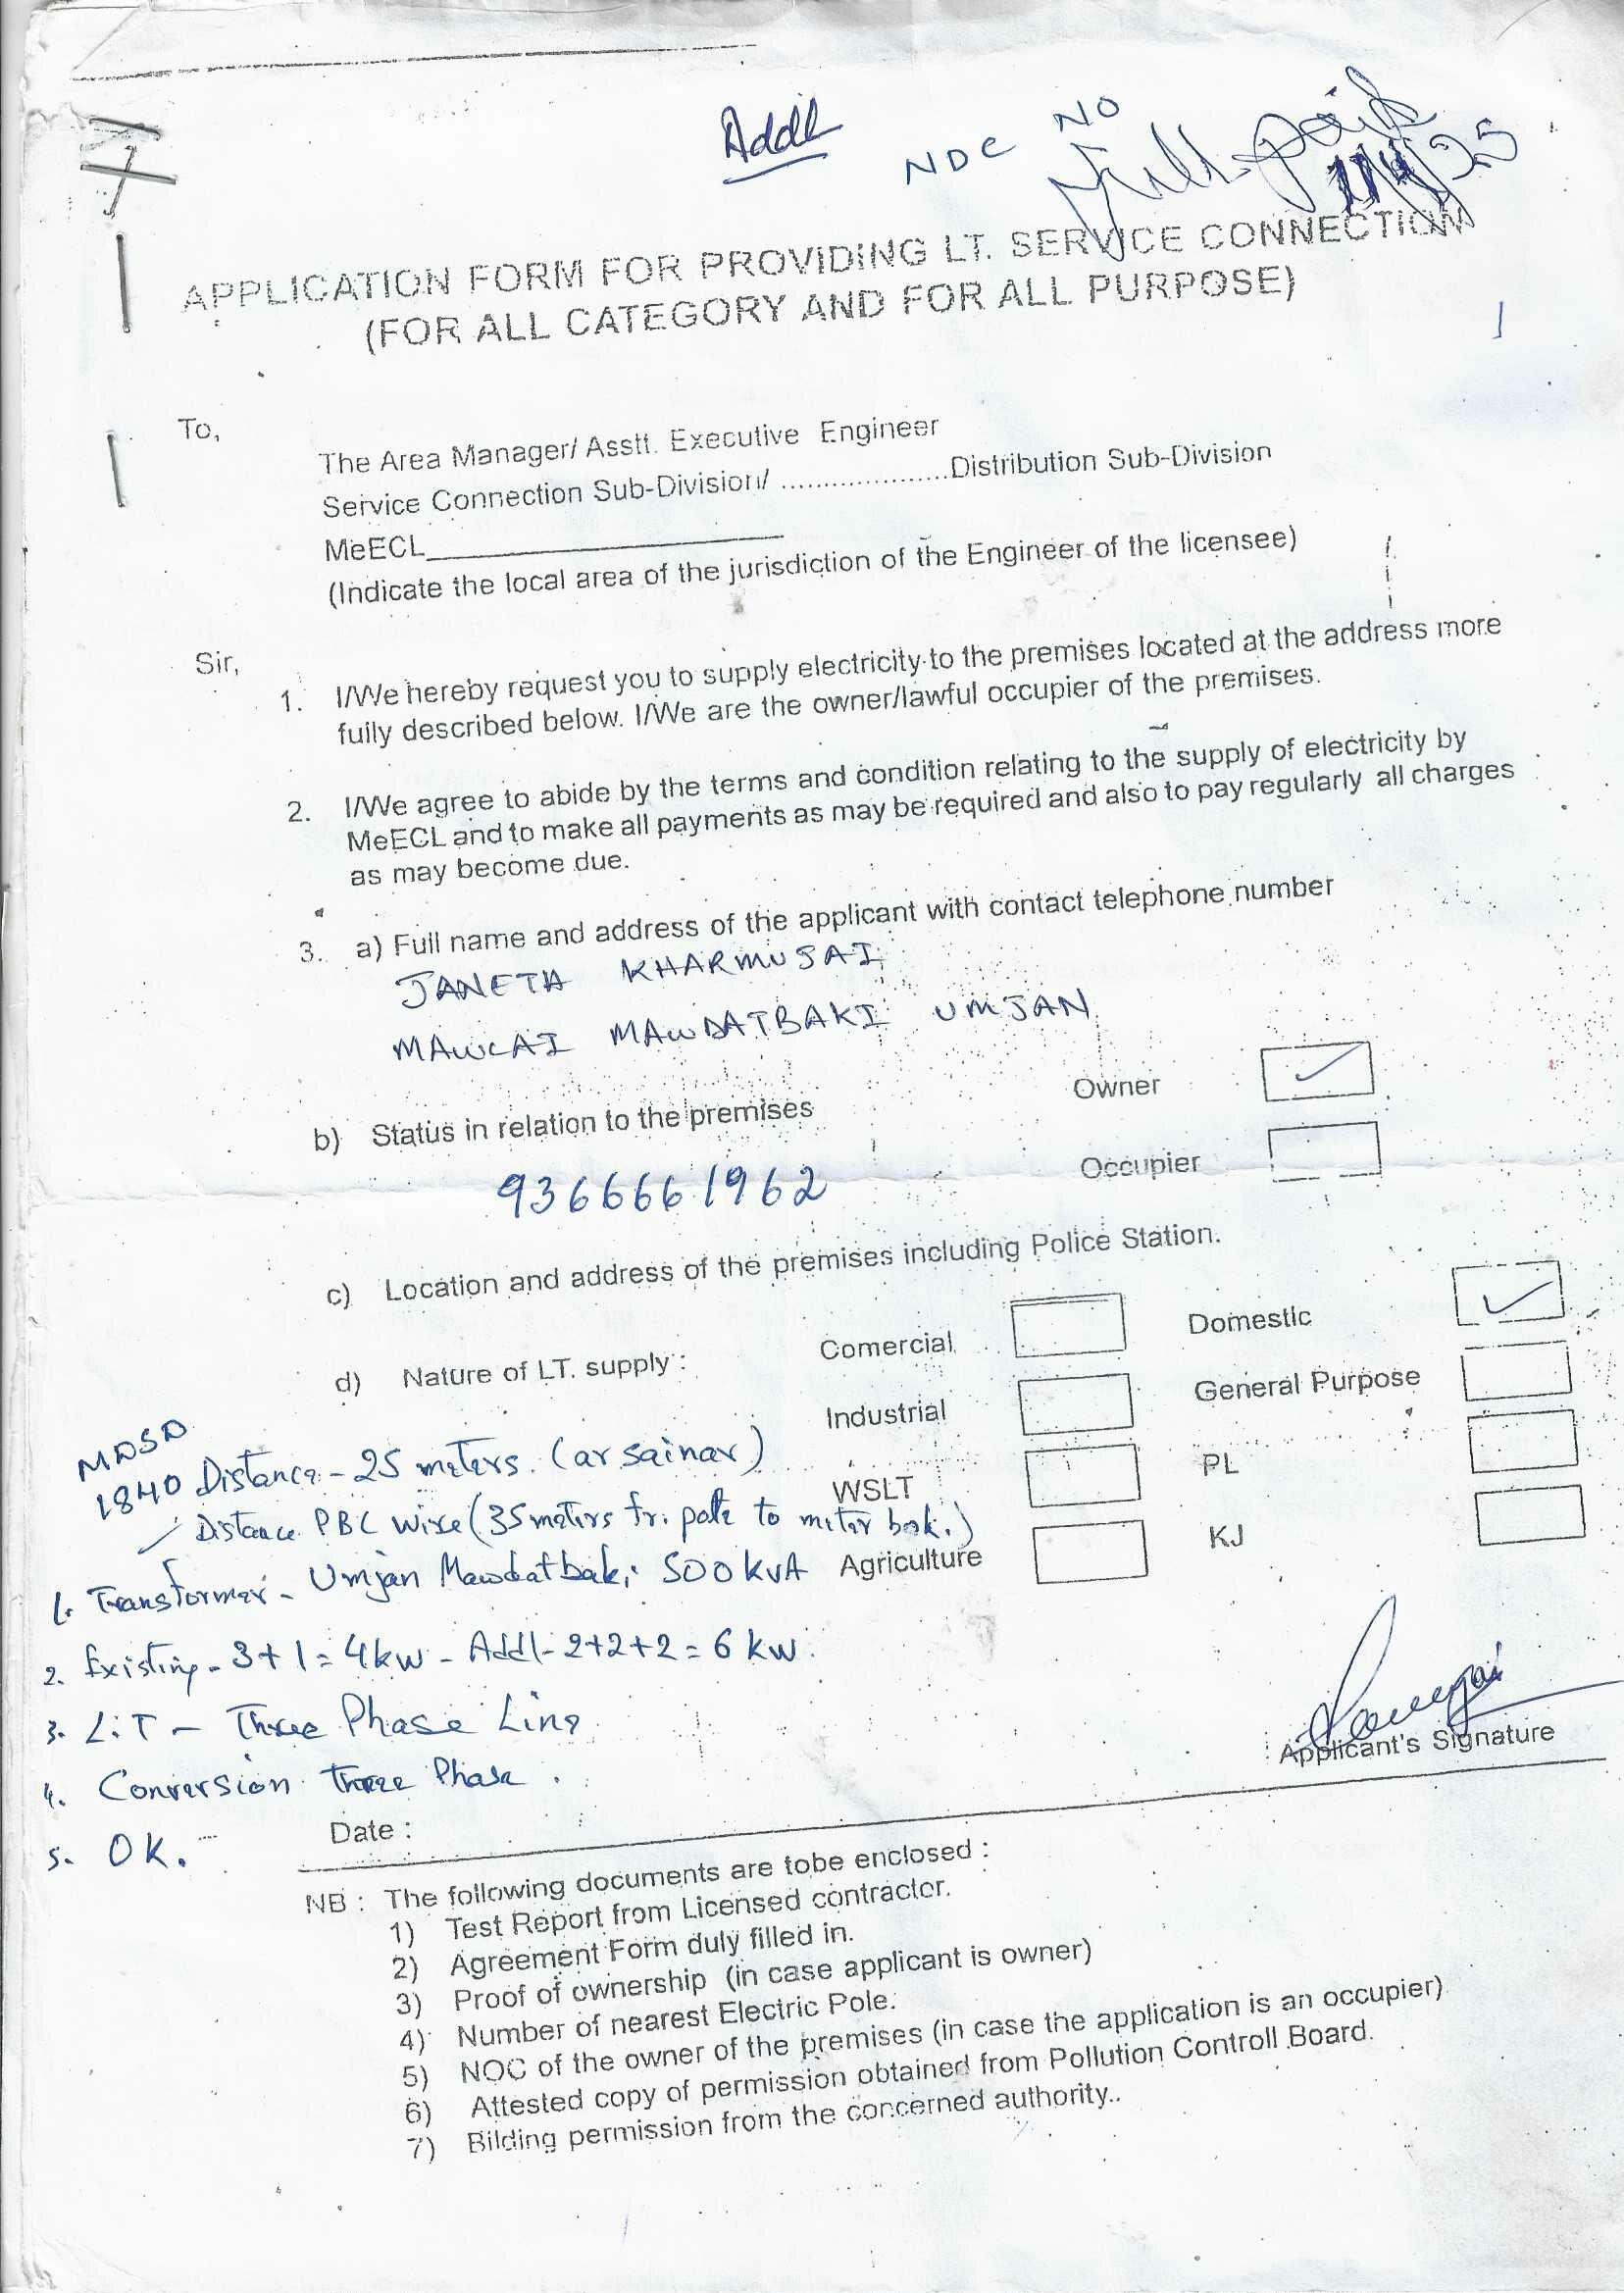 Addl
NDC NO
Full paid
APPLICATION FORM FOR PROVIDING LT. SERVICE CONNECTION
(FOR ALL CATEGORY AND FOR ALL PURPOSE)
1
To,
The Area Manager/ Asstt. Executive Engineer
Service Connection Sub-Division/ ....................Distribution Sub-Division
MeECL_______________
(Indicate the local area of the jurisdiction of the Engineer of the licensee)
Sir,
1. I/We hereby request you to supply electricity to the premises located at the address more
fully described below. I/We are the owner/lawful occupier of the premises.
2. I/We agree to abide by the terms and condition relating to the supply of electricity by
MeECL and to make all payments as may be required and also to pay regularly all charges
as may become due.
3. a) Full name and address of the applicant with contact telephone number
JANETA KHARMUJAI
MAWLAI MAWDATBAKI UMJAN
Owner ✓
b) Status in relation to the premises
Occupier
9366661962
c) Location and address of the premises including Police Station.
d) Nature of LT. supply :
Comercial Domestic ✓
Industrial General Purpose
WSLT PL
Agriculture KJ
MDSD
1840 Distance - 25 meters. (ar sainar)
Distance PBC wire (35 meters fr. pole to meter box.)
1. Transformer - Umjan Mawdatbaki 500 kVA
2. Existing - 3+1 = 4kw - Addl - 2+2+2 = 6 kw.
3. L.T - Three Phase Line
4. Conversion Three Phase.
5. OK.
Applicant's Signature
Date :
NB : The following documents are tobe enclosed :
1) Test Report from Licensed contractor.
2) Agreement Form duly filled in.
3) Proof of ownership (in case applicant is owner)
4) Number of nearest Electric Pole.
5) NOC of the owner of the premises (in case the application is an occupier)
6) Attested copy of permission obtained from Pollution Controll Board.
7) Bilding permission from the concerned authority..